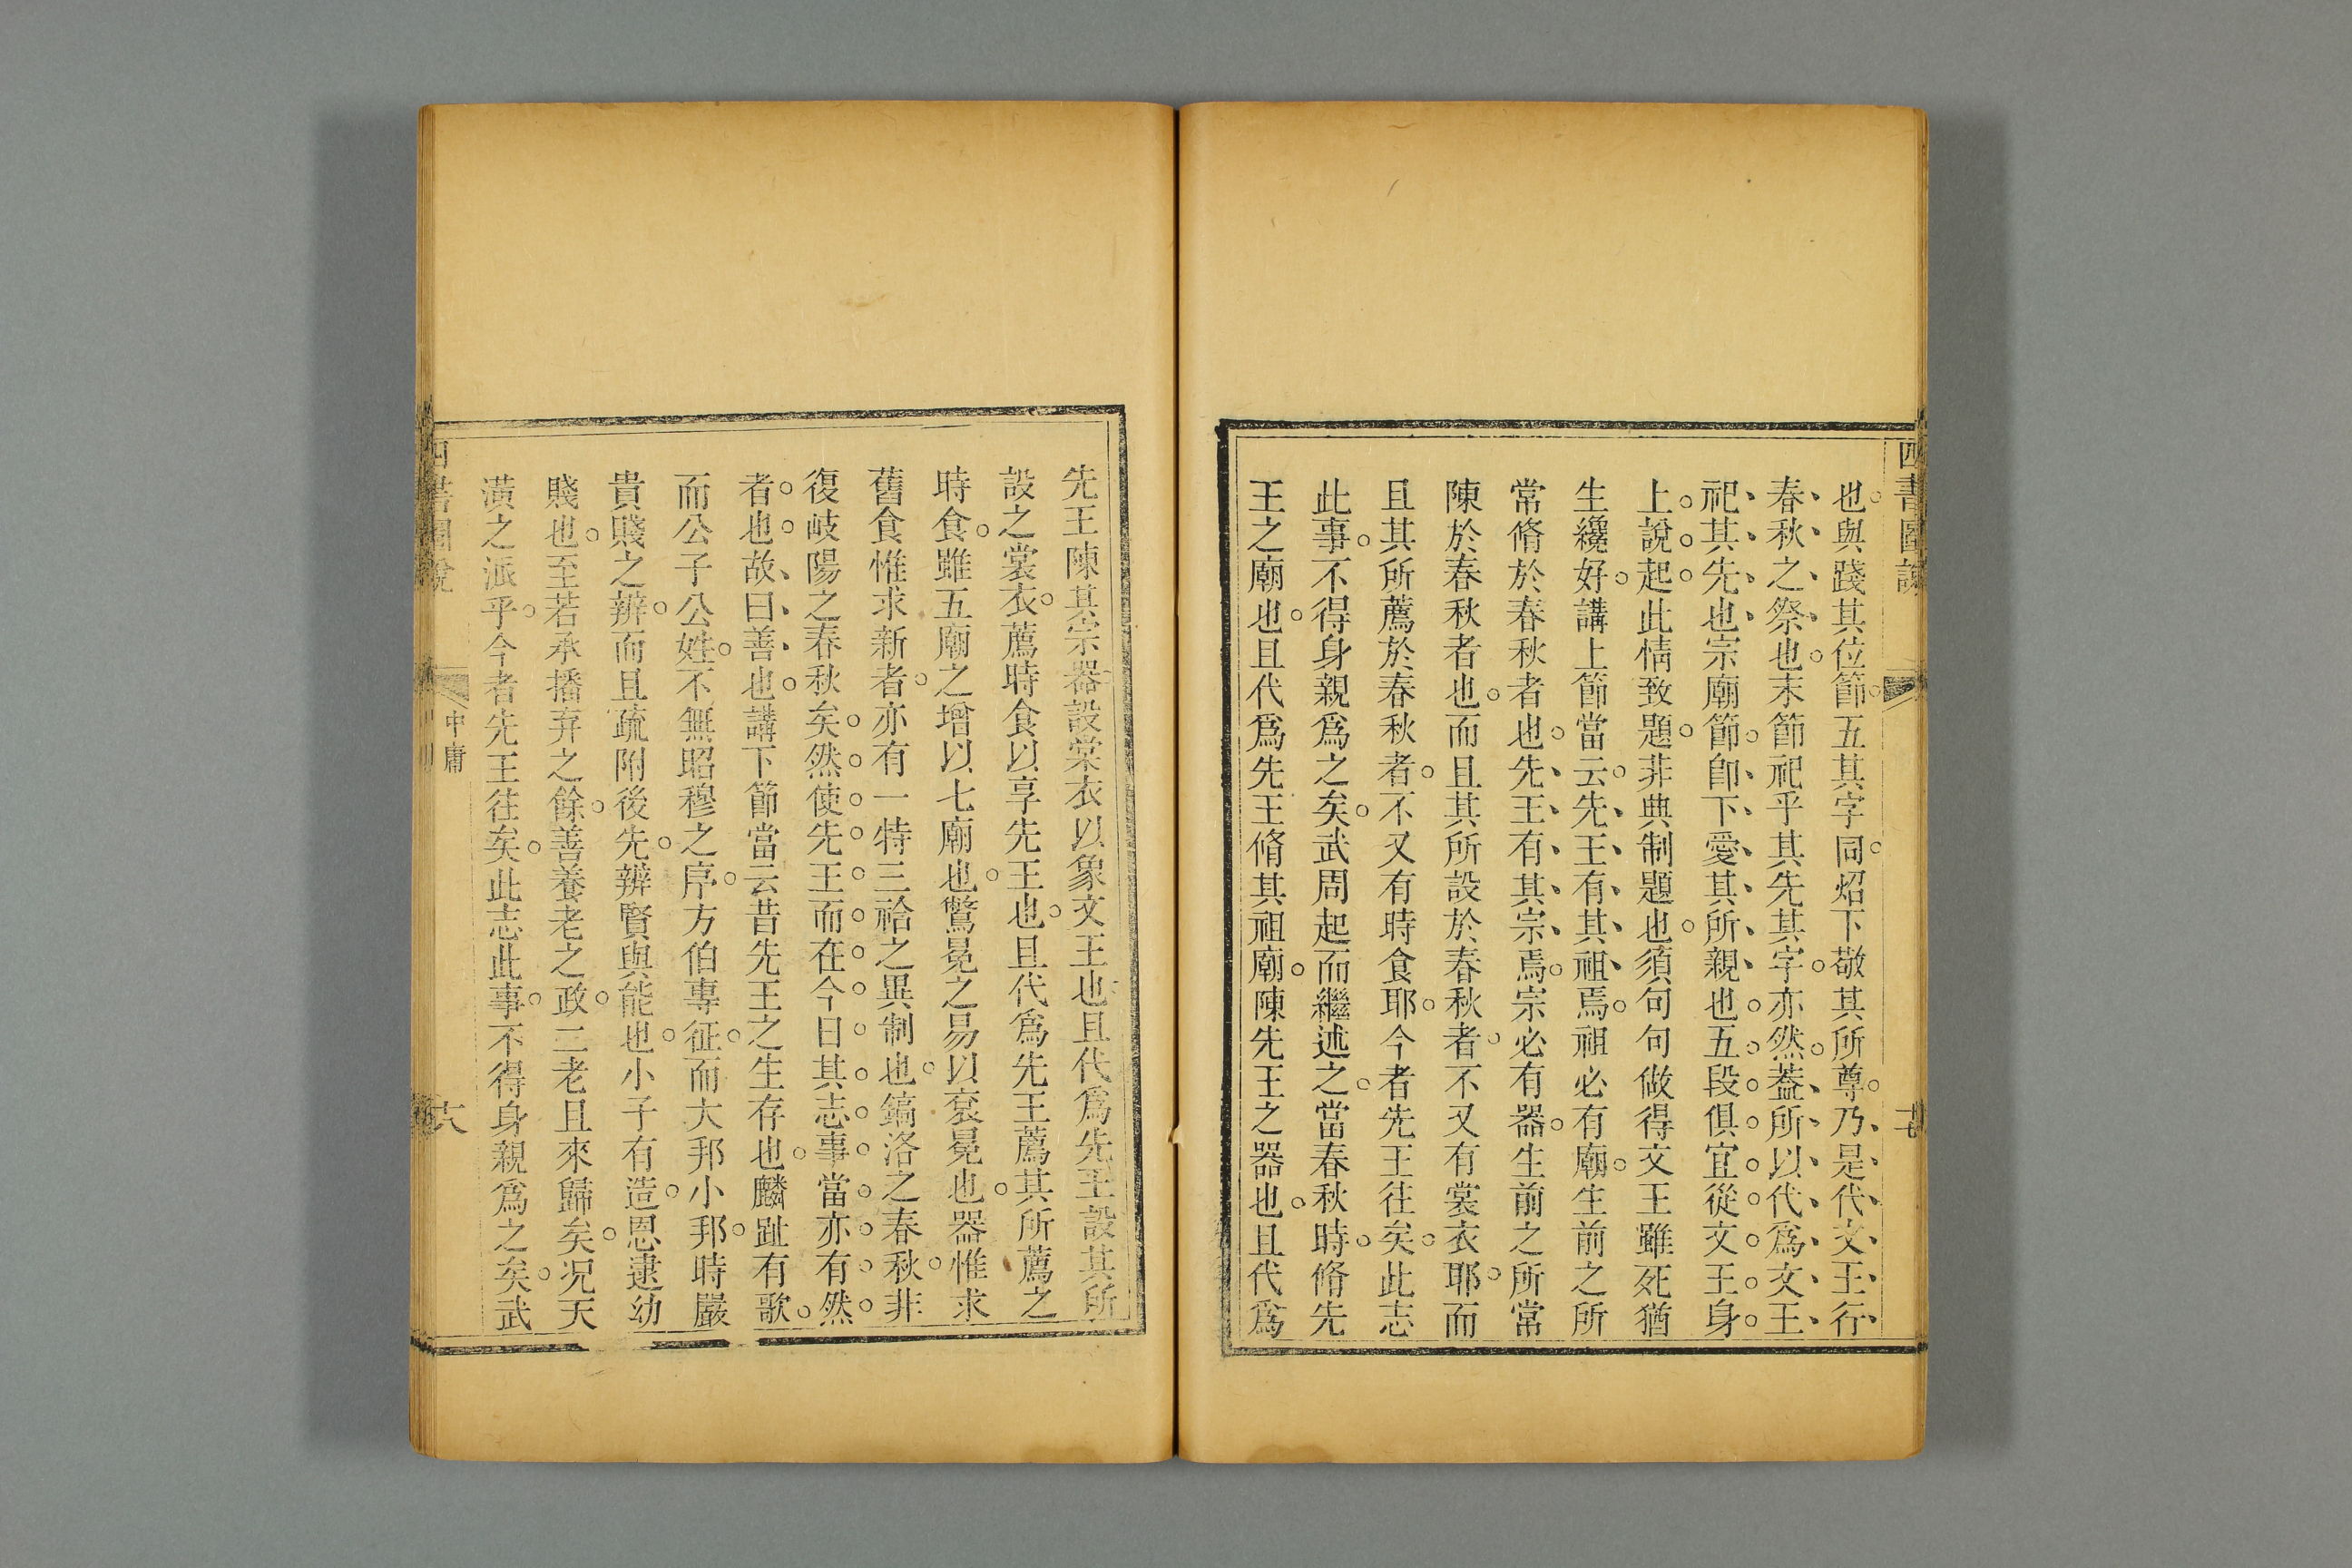 四書圖說
十七
也與踐其位節五其字同炤下敬其所尊乃是代文王行
春秋之祭也末節祀乎其先其字亦然葢所以代爲文王
祀其先也宗廟節卽下愛其所親也五段俱宜從文王身
上說起此情致題非典制題也須句句做得文王雖死猶
生纔好講上節當云先王有其祖焉祖必有廟生前之所
常脩於春秋者也先王有其宗焉宗必有器生前之所常
陳於春秋者也而且其所設於春秋者不又有裳衣耶而
且其所薦於春秋者不又有時食耶今者先王往矣此志
此事不得身親爲之矣武周起而繼述之當春秋時脩先
王之廟也且代爲先王脩其祖廟陳先王之器也且代爲
先王陳其宗器設裳衣以象文王也且代爲先王設其所
設之裳衣薦時食以享先王也且代爲先王薦其所薦之
時食雖五廟之增以七廟也驚冕之易以袞冕也器惟求
舊食惟求新者亦有一特三祫之異制也鎬洛之春秋非
復岐陽之春秋矣然使先王而在今日其志事當亦有然
者也故曰善也講下節當云昔先王之生存也麟趾有歌
而公子公姓不無昭穆之序方伯專征而大邦小邦時嚴
貴賤之辨而且疏附後先辨賢與能也小子有造恩逮幼
賤也至若承播弃之餘善養老之政二老且來歸矣况天
潢之派乎今者先王往矣此志此事不得身親爲之矣武
四書圖說
中庸
十八